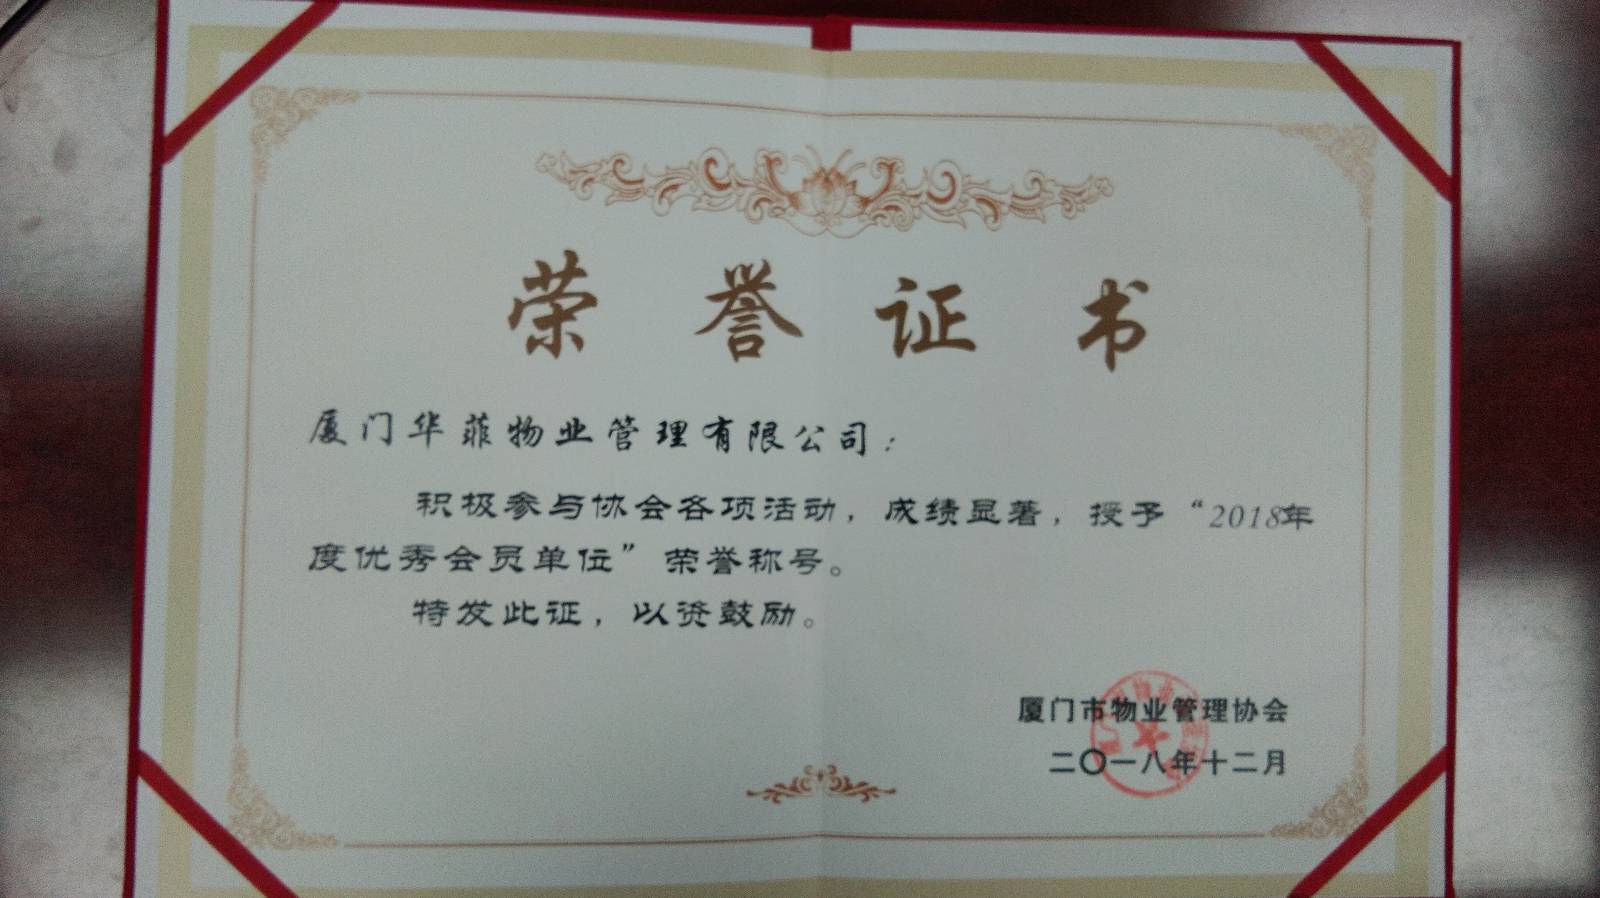 荣誉证书
厦门华菲物业管理有限公司：
积极参与协会各项活动，成绩显著，授予“2018年
度优秀会员单位”荣誉称号。
特发此证，以资鼓励。
厦门市物业管理协会
二〇一八年十二月